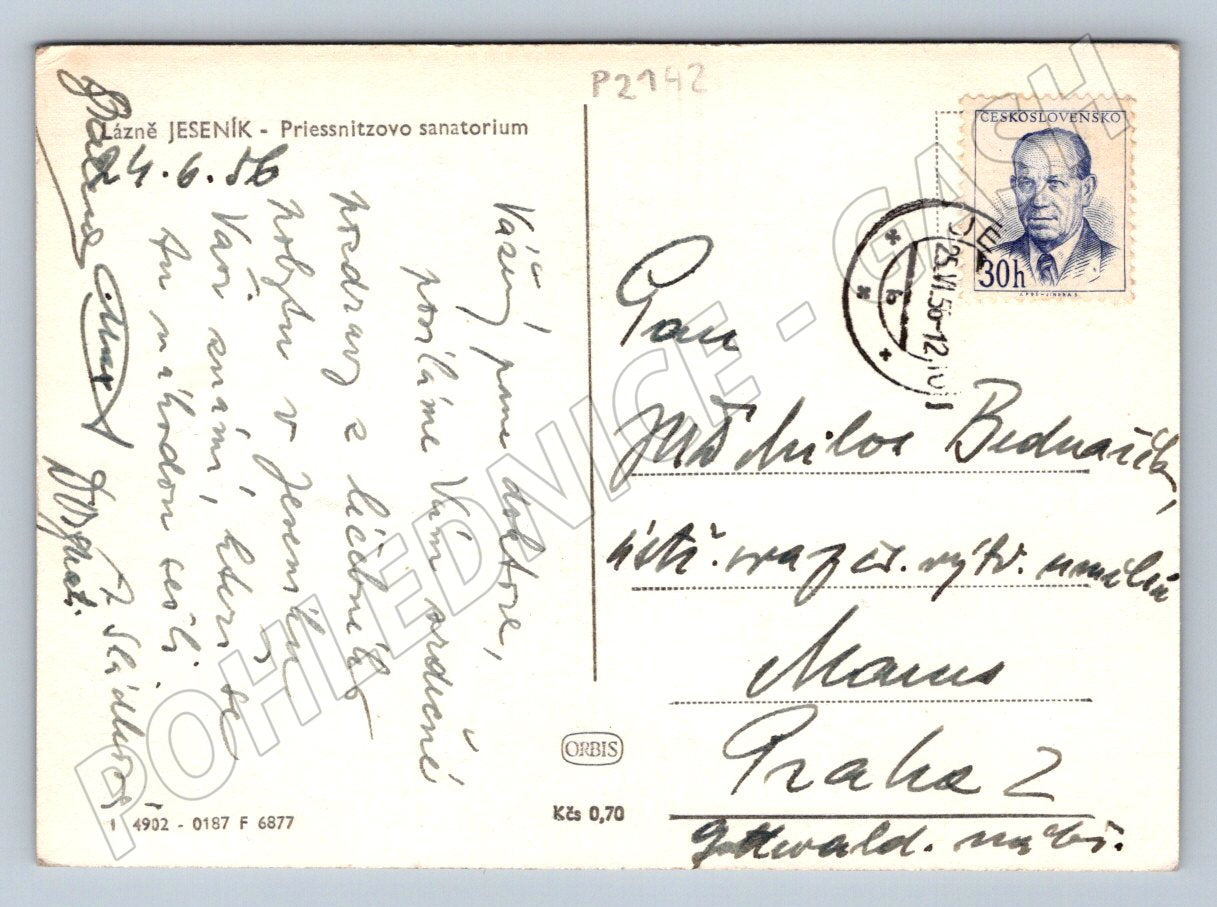 P2142
Lázně JESENÍK - Priessnitzovo sanatorium
24.6.56
Vážený pane doktore,
posíláme Vám srdečné
pozdravy z léčebného
pobytu v Jeseníku
Vaši známí, kteří se
tu náhodou sešli
ČESKOSLOVENSKO
30h
JE
25.VI.56-12
b
Pan
JUDr Miloš Bednařík,
ústř. svaz čs. výtv. umělců
Manes
Praha 2
Gottwald. nábř.
ORBIS
Kčs 0,70
1 4902 - 0187 F 6877
POHLEDNICE - GASH